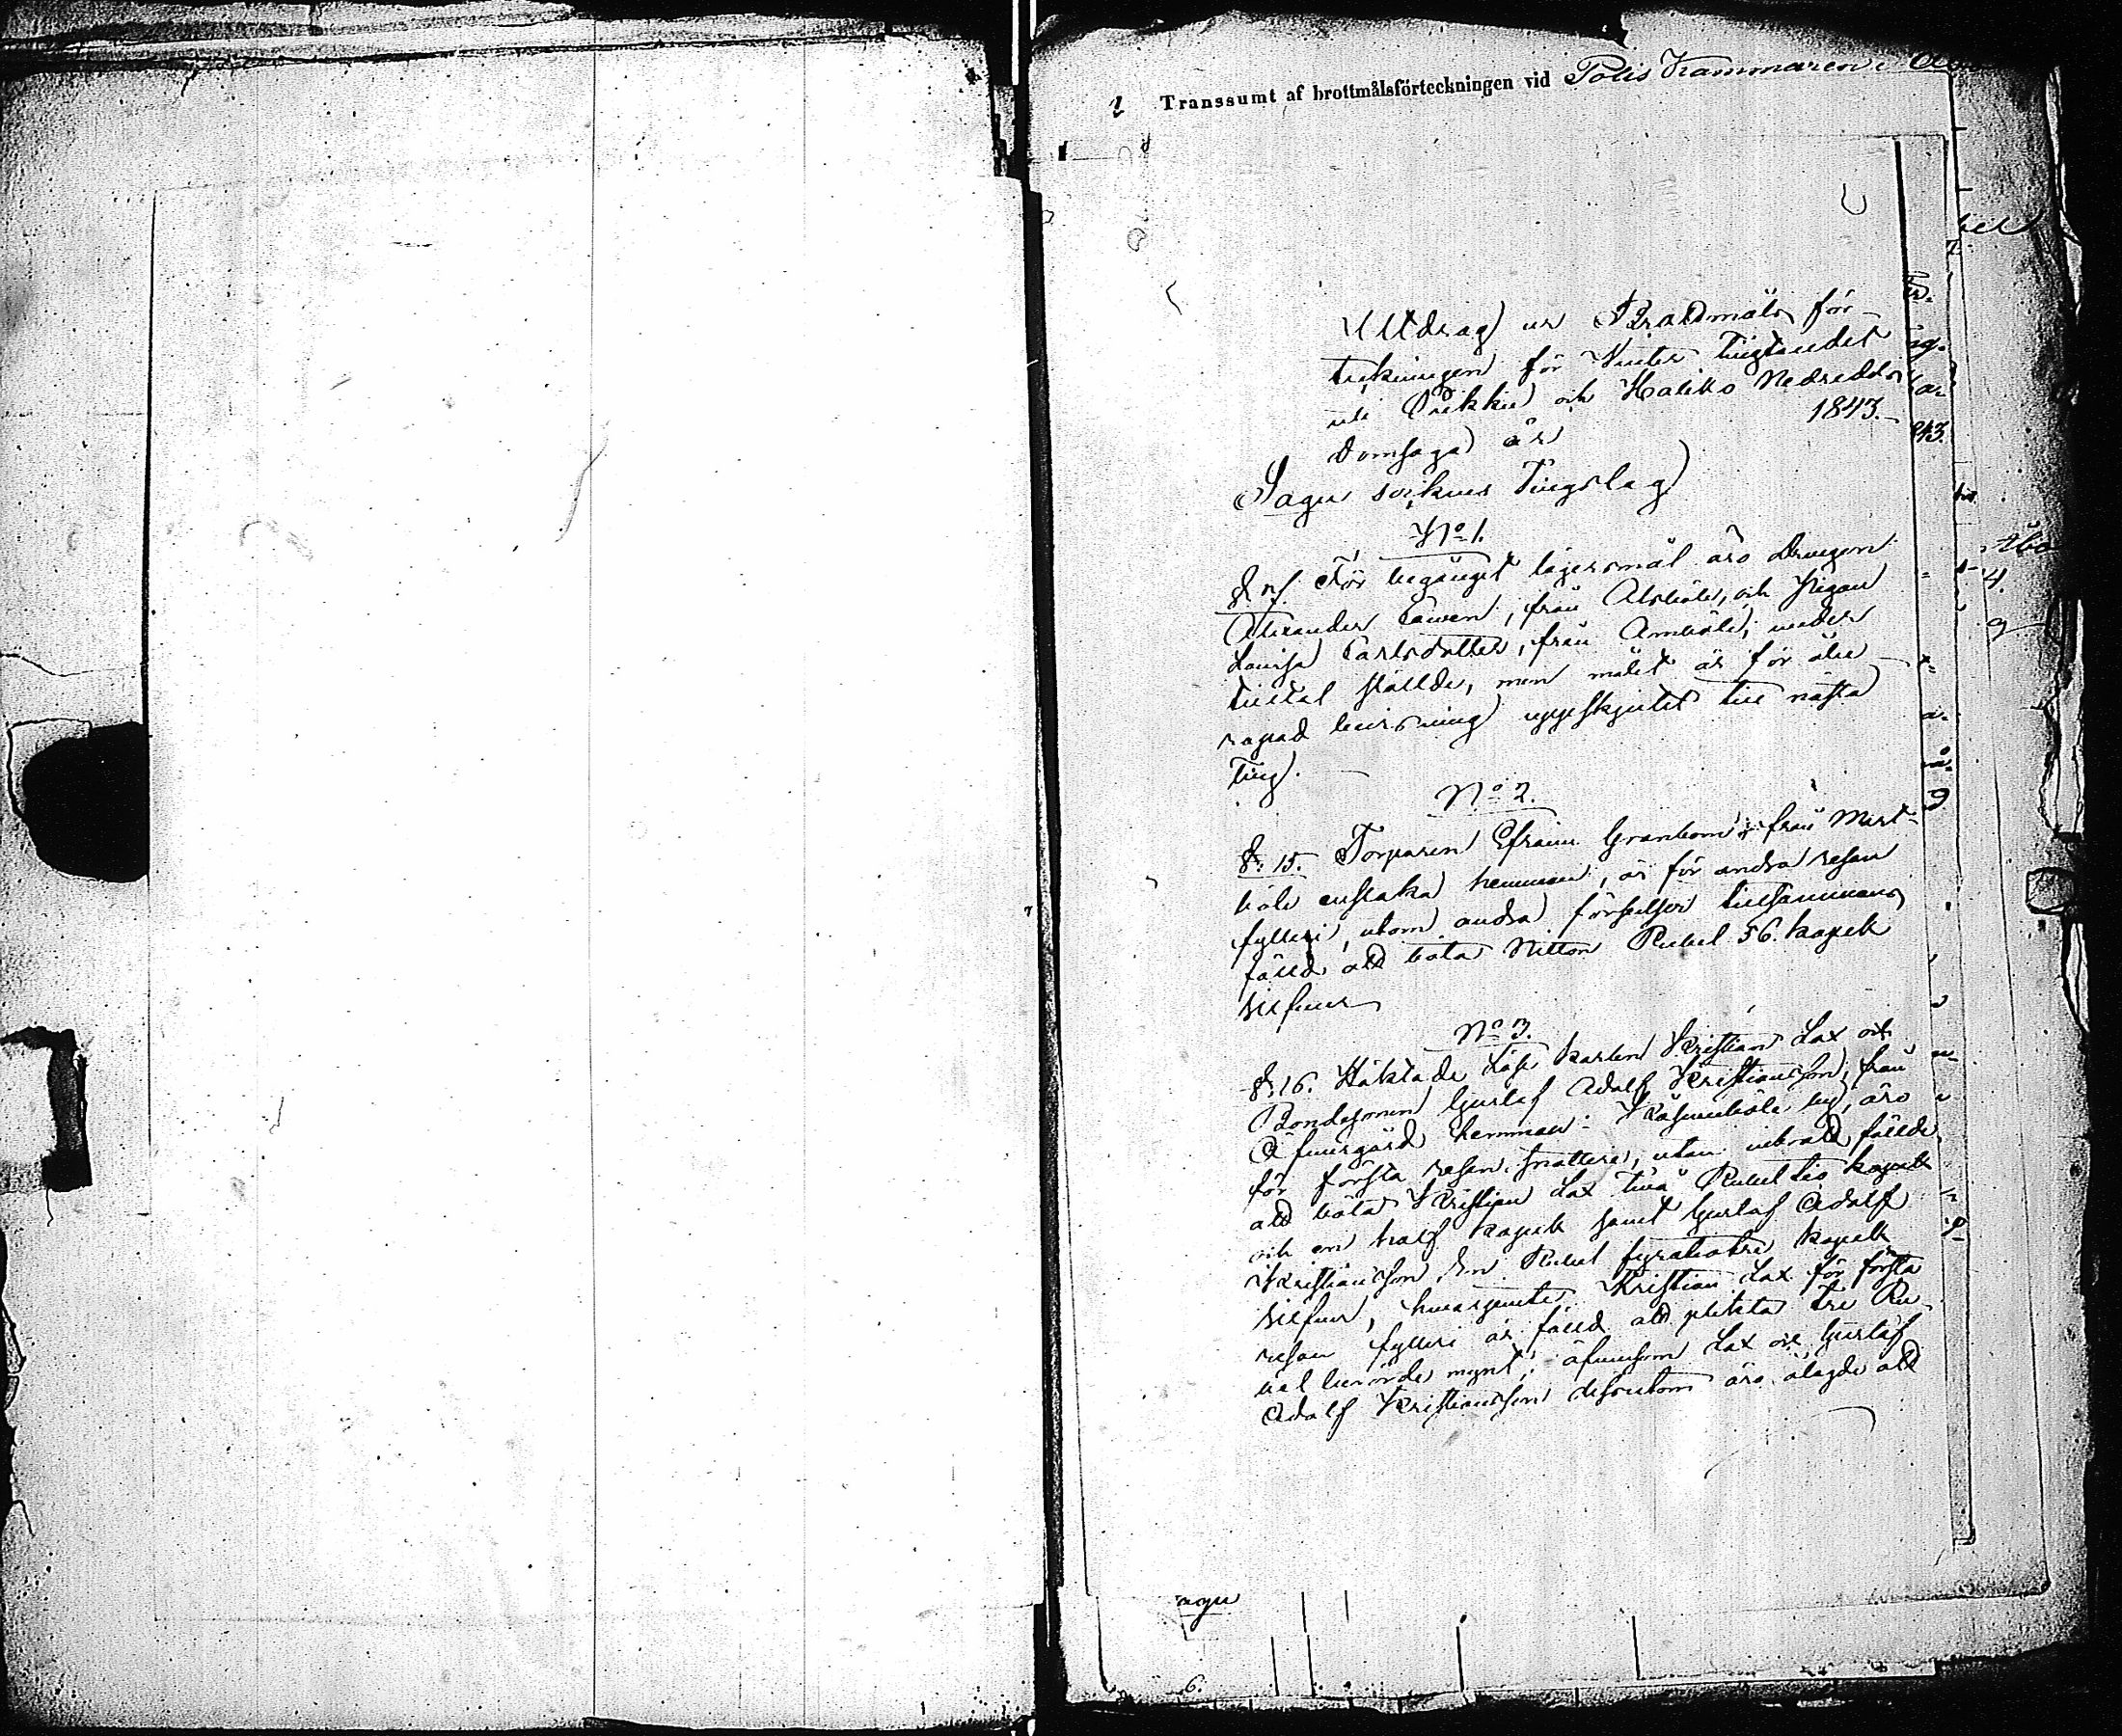 1 Transsumt af brottmålsförteckningen vid Polis Kammaren i
Utdrag ur Brottmåls för-
teckningen för Vinter Tingtandet
uti Pikkie och Haliko Nedredels
Domsaga år 1843.-
Sagu sockens Tingslag
No 1.
§ 11. För begånget lägersmål äro Drengen
Alexander , från , och Pigan
Lovisa Carlsdotter, från , under
tilltal ställde, men målet är för åbe-
ropad bevisning uppskjutet till nästa
Ting.
No 2.
§. 15. Torparen Efraim Granbom, från Mert-
böle enstaka hemman, är för andra resan
fylleri, utom andra förseelser tillsammans
fälld att böta Nitton Rubel 56. kopek
silfver
No 3.
§. 16. Häktade Löse karlen Kristian Lax och
Bondesonen Gustaf Adolf Kristiansson, från
Öfvergård hemman i by, äro
för första resan snatteri, utan inbrott, fällde
att böta Kristian Lax två Rubel tio kopek
och en half kopek samt Gustaf Adolf
Kristiansson En Rubel fyratiotre kopek
silfver, hvarjemte Kristian Lax för första
resan fylleri är fälld att plikta tre Ru-
bel berörde mynt; äfvensom Lax och Gustaf
Adolf Kristiansson dessutom äro ålagde att
43.
4.
agu
6.